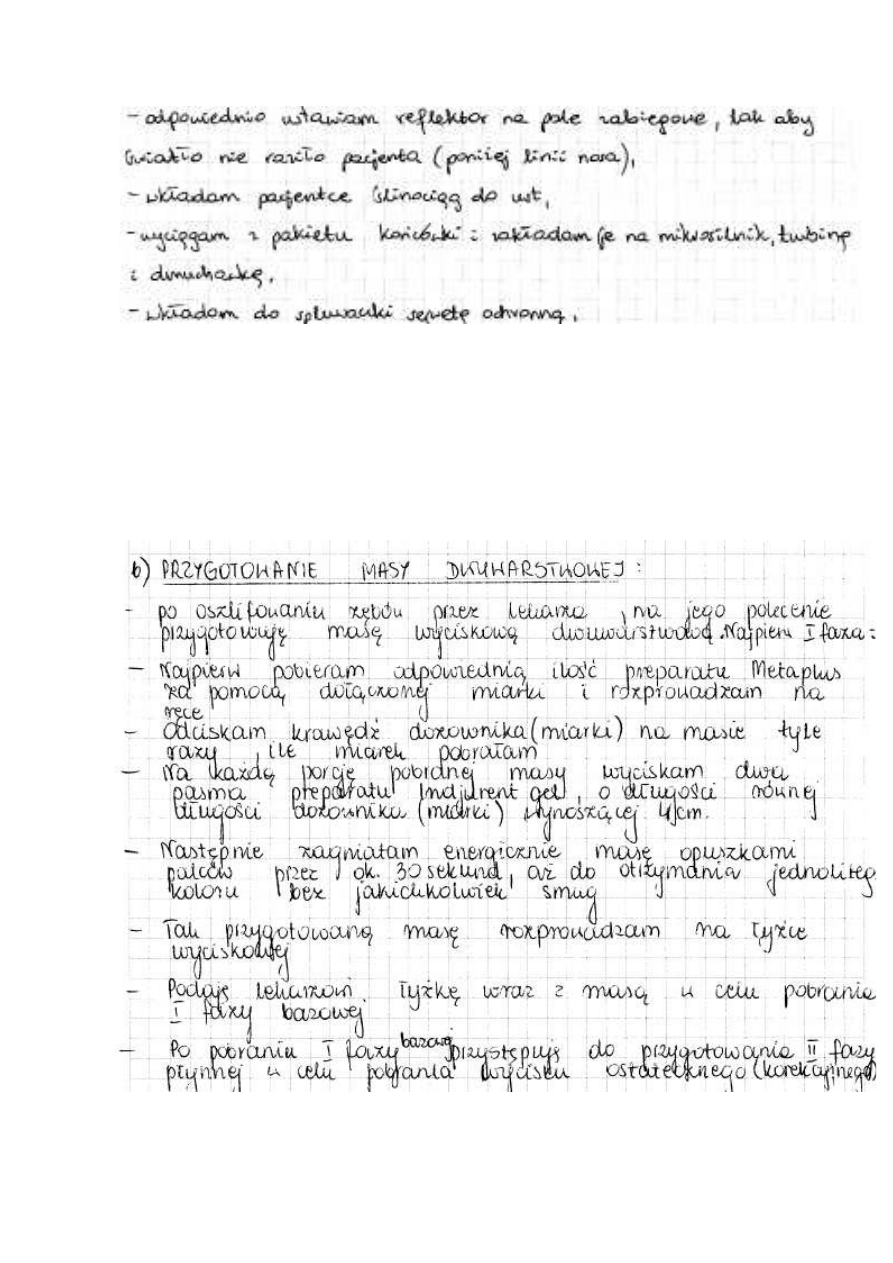 - odpowiednio ustawiam reflektor na pole zabiegowe, tak aby
światło nie raziło pacjenta (poniżej linii nosa),
- wkładam pacjentce ślinociąg do ust,
- wyciągam z pakietu końcówki i zakładam je na mikrosilnik, turbinę
i dmuchawkę,
- wkładam do spluwaczki serwetę ochronną.
b) PRZYGOTOWANIE MASY DWUWARSTWOWEJ :
- po oszlifowaniu zębów przez lekarza, na jego polecenie
przygotowuję masę wyciskową dwuwarstwową. Najpierw I faza:
- Najpierw pobieram odpowiednią ilość preparatu Metaplus
za pomocą dołączonej miarki i rozprowadzam na
ręce
- Odciskam krawędź dozownika (miarki) na masie tyle
razy, ile miarek pobrałam
- Na każdą porcję pobranej masy wyciskam dwa
pasma preparatu Indurent gel, o długości równej
długości dozownika (miarki) wynoszącej 4cm.
- Następnie zagniatam energicznie masę opuszkami
palców przez ok. 30 sekund, aż do otrzymania jednoliteg
koloru bez jakichkolwiek smug
- Tak przygotowaną masę rozprowadzam na łyżce
wyciskowej
- Podaję lekarzowi łyżkę wraz z masą w celu pobrania
I fazy bazowej
- Po pobraniu I fazy bazowej przystępuję do przygotowania II fazy
płynnej w celu pobrania wycisku ostatecznego (korekcyjnego)